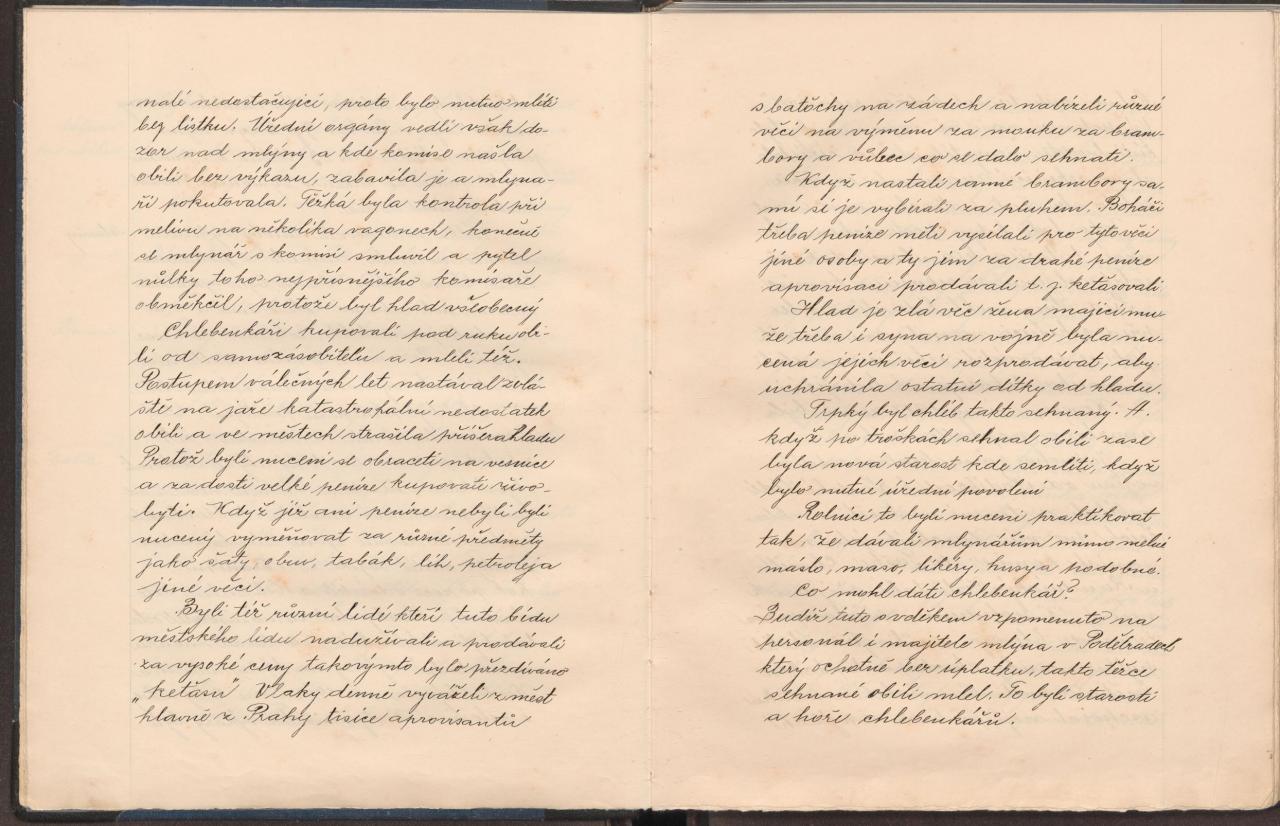 nalé nedostačující, proto bylo nutno mlíti
bez lístku. Úřední orgány vedli však do-
zor nad mlýny a kde komise našla
obilí bez výkazu, zabavila je a mlyna-
ři pokutovala. Těžká byla kontrola při
melivu na několika vagonech, konečně
se mlynář s komisí smluvil a pytel
nulky toho nejpřísnějšího komisaře
obměkčil, protože byl hlad všeobecný
Chlebenkáři kupovali pod ruku obi-
lí od samozásobitelu a mleli též.
Postupem válečných let nastával zvlá-
ště na jaře katastrofální nedostatek
obilí a ve městech strašila příšera hladu
Protož byli nuceni se obraceti na vesnice
a za dosti velké peníze kupovati živo-
bytí. Když již ani peníze nebyli byli
nuceny vyměňovat za různé předměty
jako šaty, obuv, tabák, líh, petrolej a
jiné věci.
Byli též různí lidé kteří tuto bídu
městského lidu nadužívali a prodávali
za vysoké ceny takovýmto bylo přezdíváno
„keťasu" Vlaky denně vyváželi z měst
hlavně z Prahy tisíce aprovisantů
s batochy na zádech a nabízeli různé
věci na výměnu za mouku za bram-
bory a vůbec co se dalo sehnati.
Když nastali ranné brambory sa-
mi si je vybírali za pluhem. Boháči
třeba peníze měli vysílali pro tyto věci
jiné osoby a ty jim za drahé peníze
aprovisaci prodávali t. j. keťasovali
Hlad je zlá věc žena mající mu-
že třeba i syna na vojně byla nu-
cená jejich věci rozprodávat, aby
uchránila ostatní dítky od hladu.
Trpký byl chléb takto sehnaný. A.
když po troškách sehnal obilí zase
byla nová starost kde semlíti, když
bylo nutné úřední povolení
Rolníci to byli nuceni praktikovat
tak, že dávali mlynářům mimo melné
máslo, maso, likéry, husy a podobné.
Co mohl dáti chlebenkář?
Budiž tuto s vděkem vzpomenuto na
personál i majitele mlýna v Poděbradech
který ochotně bez úplatku, takto těžce
sehnané obilí mlel. To byli starosti
a hoře chlebenkářů.